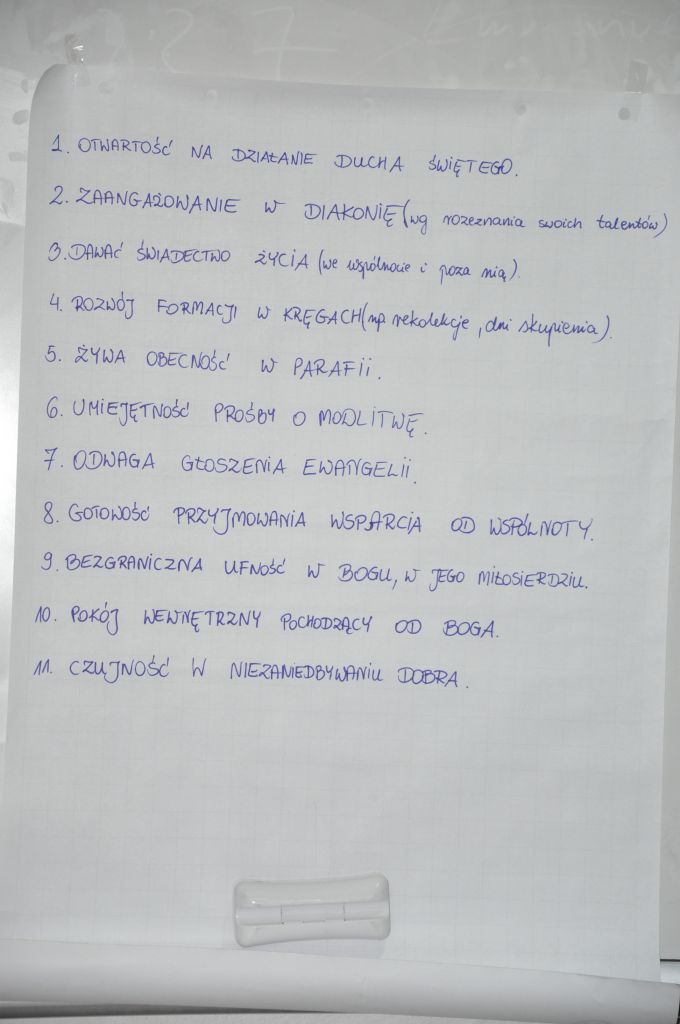 1. OTWARTOŚĆ NA DZIAŁANIE DUCHA ŚWIĘTEGO.
2. ZAANGAŻOWANIE W DIAKONIĘ (wg rozeznania swoich talentów)
3. DAWAĆ ŚWIADECTWO ŻYCIA (we wspólnocie i poza nią).
4. ROZWÓJ FORMACJI W KRĘGACH (np rekolekcje, dni skupienia).
5. ŻYWA OBECNOŚĆ W PARAFII.
6. UMIEJĘTNOŚĆ PROŚBY O MODLITWĘ.
7. ODWAGA GŁOSZENIA EWANGELII.
8. GOTOWOŚĆ PRZYJMOWANIA WSPARCIA OD WSPÓLNOTY.
9. BEZGRANICZNA UFNOŚĆ W BOGU, W JEGO MIŁOSIERDZIU.
10. POKÓJ WEWNĘTRZNY POCHODZĄCY OD BOGA.
11. CZUJNOŚĆ W NIEZANIEDBYWANIU DOBRA.